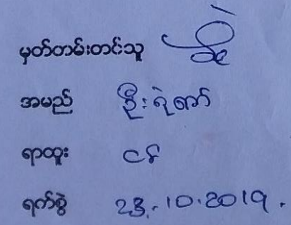 မှတ်တမ်းတင်သူ
အမည် ဦးရဲဇော်
ရာထူး ငစ်
ရက်စွဲ 23.10.2019.